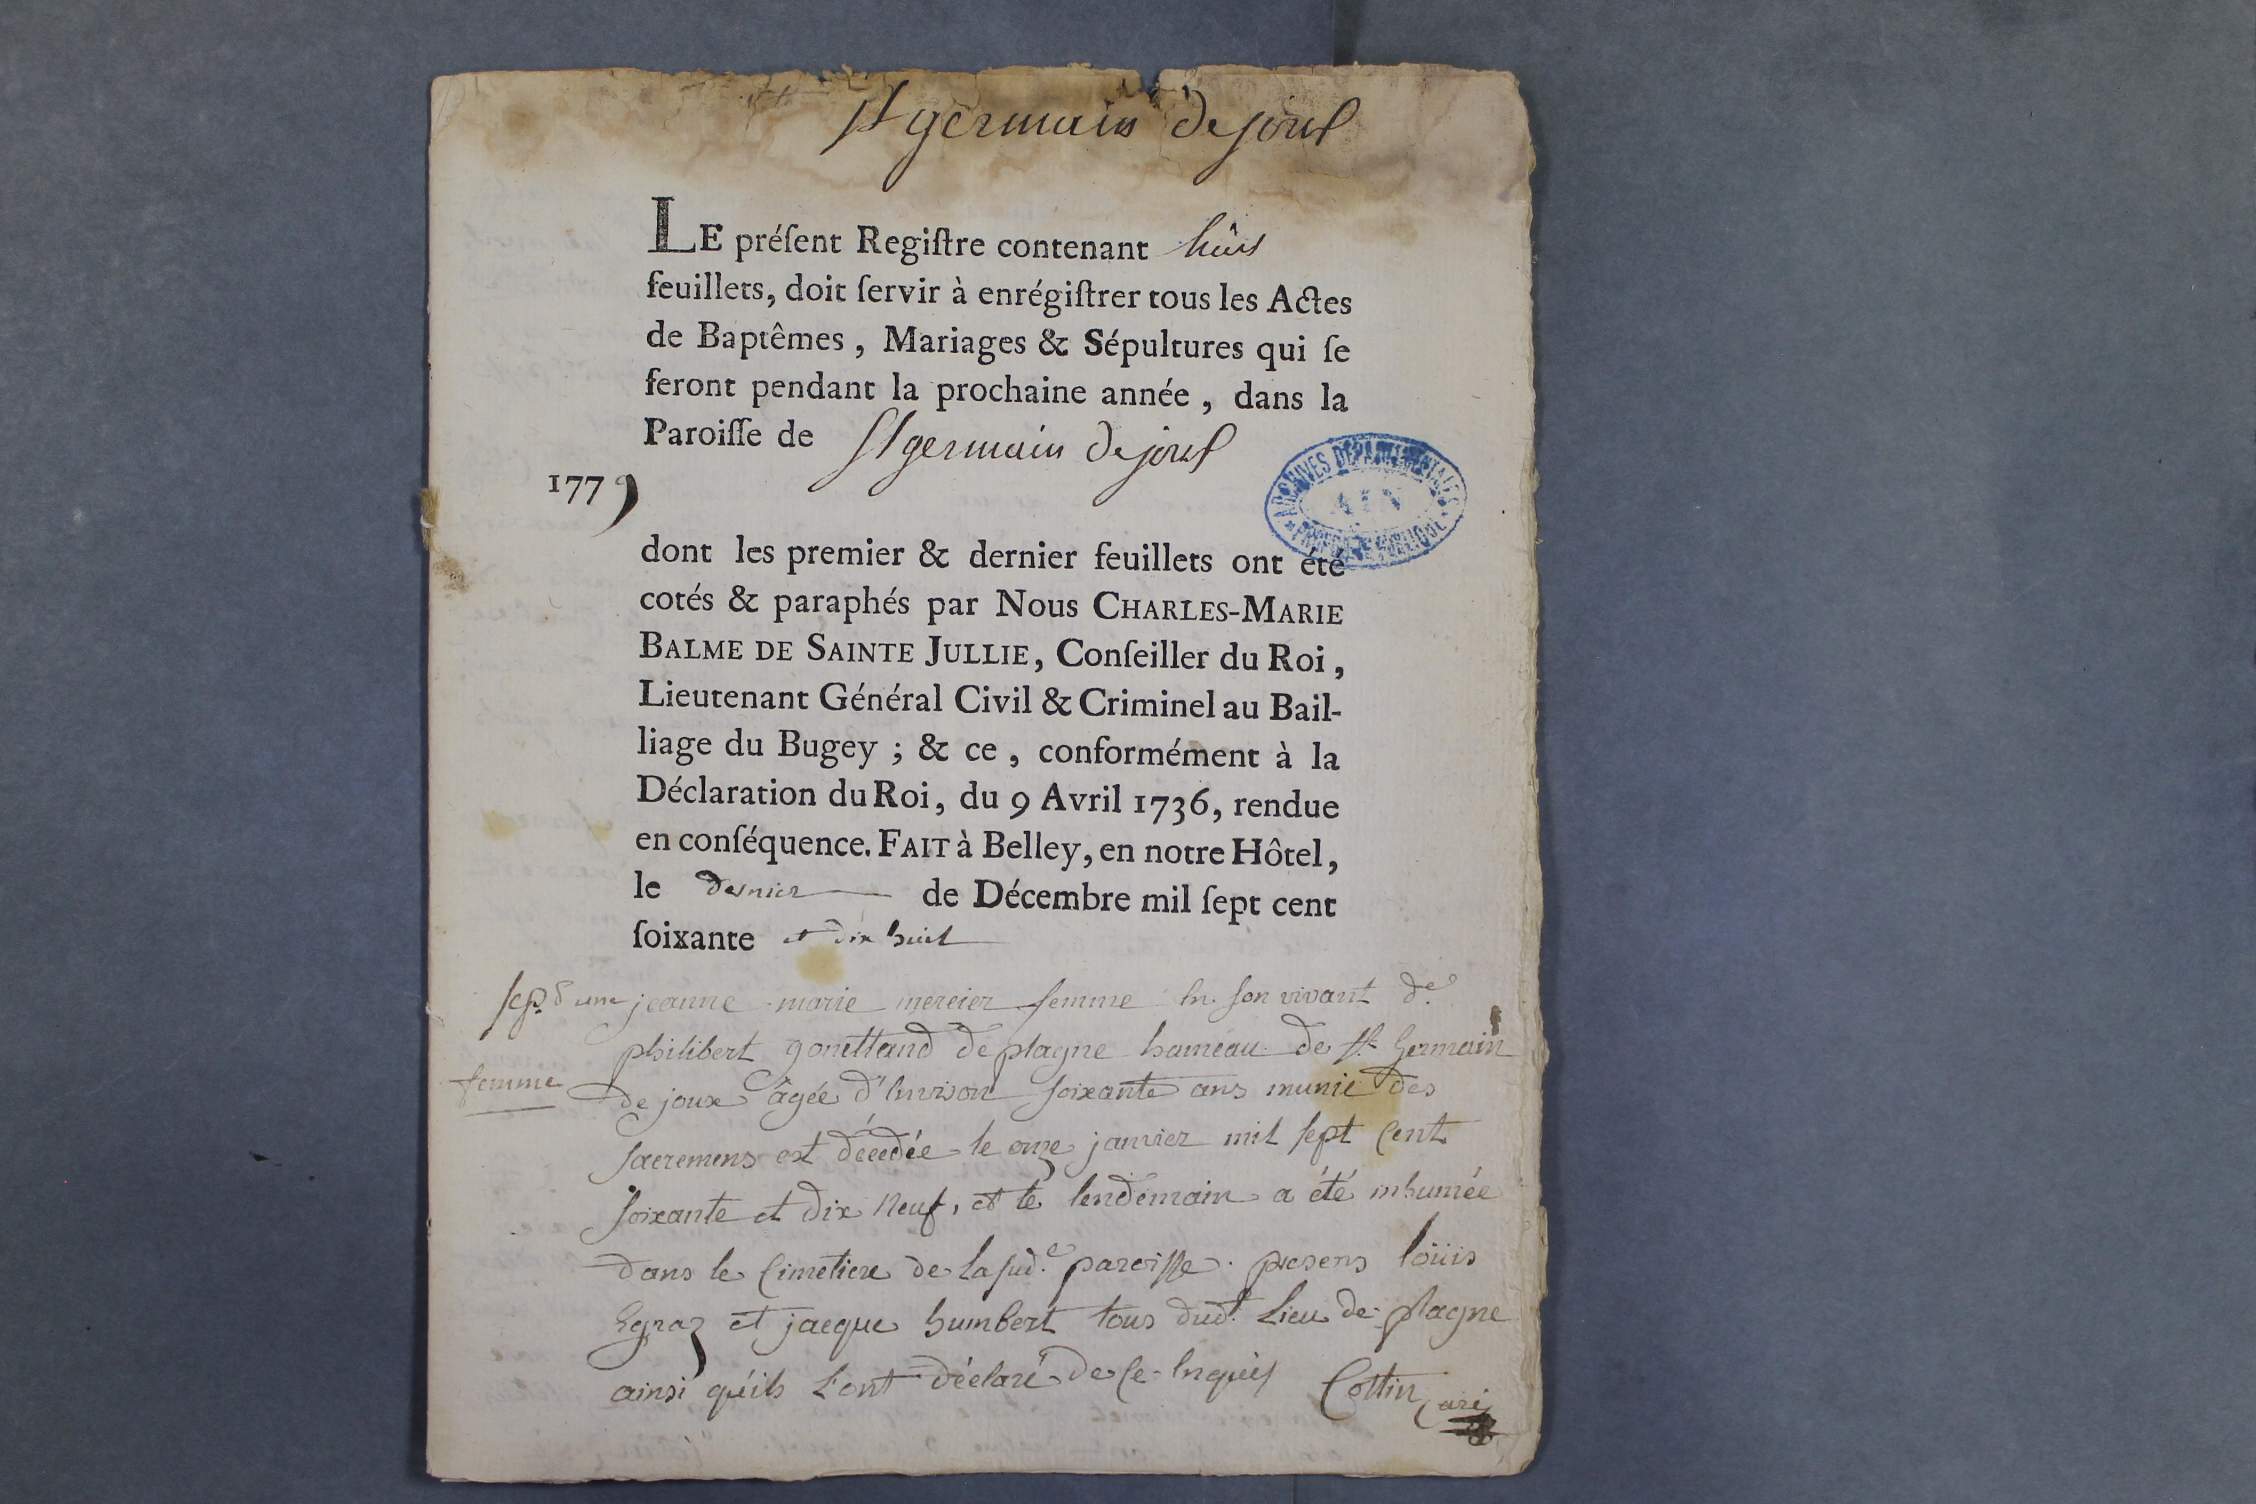 st germain de joux
LE préſent Regiſtre contenant huit
feuillets, doit ſervir à enrégiſtrer tous les Actes
de Baptêmes, Mariages & Sépultures qui ſe
feront pendant la prochaine année, dans la
Paroiſſe de st germain de joux
1779
ARCHIVES DEPARTEMENTALES
AIN
dont les premier & dernier feuillets ont été
cotés & paraphés par Nous CHARLES-MARIE
BALME DE SAINTE JULLIE, Conſeiller du Roi,
Lieutenant Général Civil & Criminel au Bail-
liage du Bugey ; & ce, conformément à la
Déclaration du Roi, du 9 Avril 1736, rendue
en conſéquence. FAIT à Belley, en notre Hôtel,
le dernier de Décembre mil ſept cent
ſoixante et dix huit
sep.e d'une
femme
jeanne marie mercier femme en son vivant de
philibert gonettand de plagne hameau de st. Germain
de joux âgée d'environ soixante ans munie des
sacremens est décedée le onze janvier mil sept cent
soixante et dix neuf, et le lendemain a été inhumée
dans le cimetiere de la sud.e paroisse. presens loüis
Egraz et jacque humbert tous dud.t Lieu de plagne
ainsi qu'ils L'ont déclaré de ce enquis Cottin curé